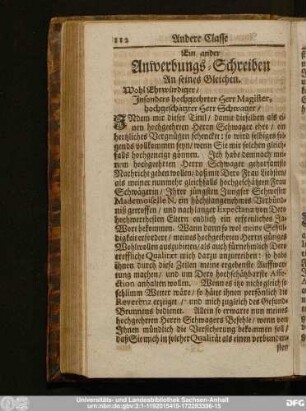 112 Andere Classe
Ein ander
Anwerbungs-Schreiben
An seines Gleichen.
WohlEhrwürdiger /
Insonders hochgeehrter Herr Magister,
hochgeschätzter Herr Schwager /
INdem mir dieser Titul / damit dieselben als ei-
nen hochgeehrten Herrn Schwager ehre / ein
hertzliches Vergnügen schencket; so wird selbiges fol-
gends vollkommen seyn / wenn Sie mir solchen gleich-
falls hochgeneigt gönnen. Ich habe demnach mei-
nem hochgeehrten Herrn Schwager gehorsamste
Nachricht geben wollen; daß mit Dero Frau Liebsten,
als meiner nunmehr gleichfalls hochgeschätzten Frau
Schwägerin / Ihrer jüngsten Jungfer Schwester
Mademoiselle N. ein höchstangenehmes Verbünd-
niß getroffen / und nach langer Expectanz von Dero
hochwerthesten Eltern endlich ein erfreuliches Ja-
Wort bekommen. Wann dann so wol meine Schul-
digkeit erfordert / meines hochgeehrten Herrn
Wohlwollen auszubitten; als auch fürnehmlich Dero
treffliche Qualität mich darzu anzutreiben; so habe
ihnen durch diese Zeilen meine ergebenste Auffwar-
tung machen / und um Dero hochschätzbarste Affe-
ction anhalten wollen. Wenn es itzo nicht gleich so
schlimm Wetter wäre / so hätte ihnen persönlich die
Reverentz erzeiget / und mich zugleich des Gesund-
Brunnens bedienet. Allein so erwarte nun meines
hochgeehrten Herrn Schwagers Befehle / wenn von
Ihnen mündlich die Versicherung bekommen soll /
daß Sie mich in solcher Qualität als einen verbunden-
sten
Universitäts- und Landesbibliothek Sachsen-Anhalt
urn:nbn:de:gbv:3:1-1192015415-172283396-15
DFG